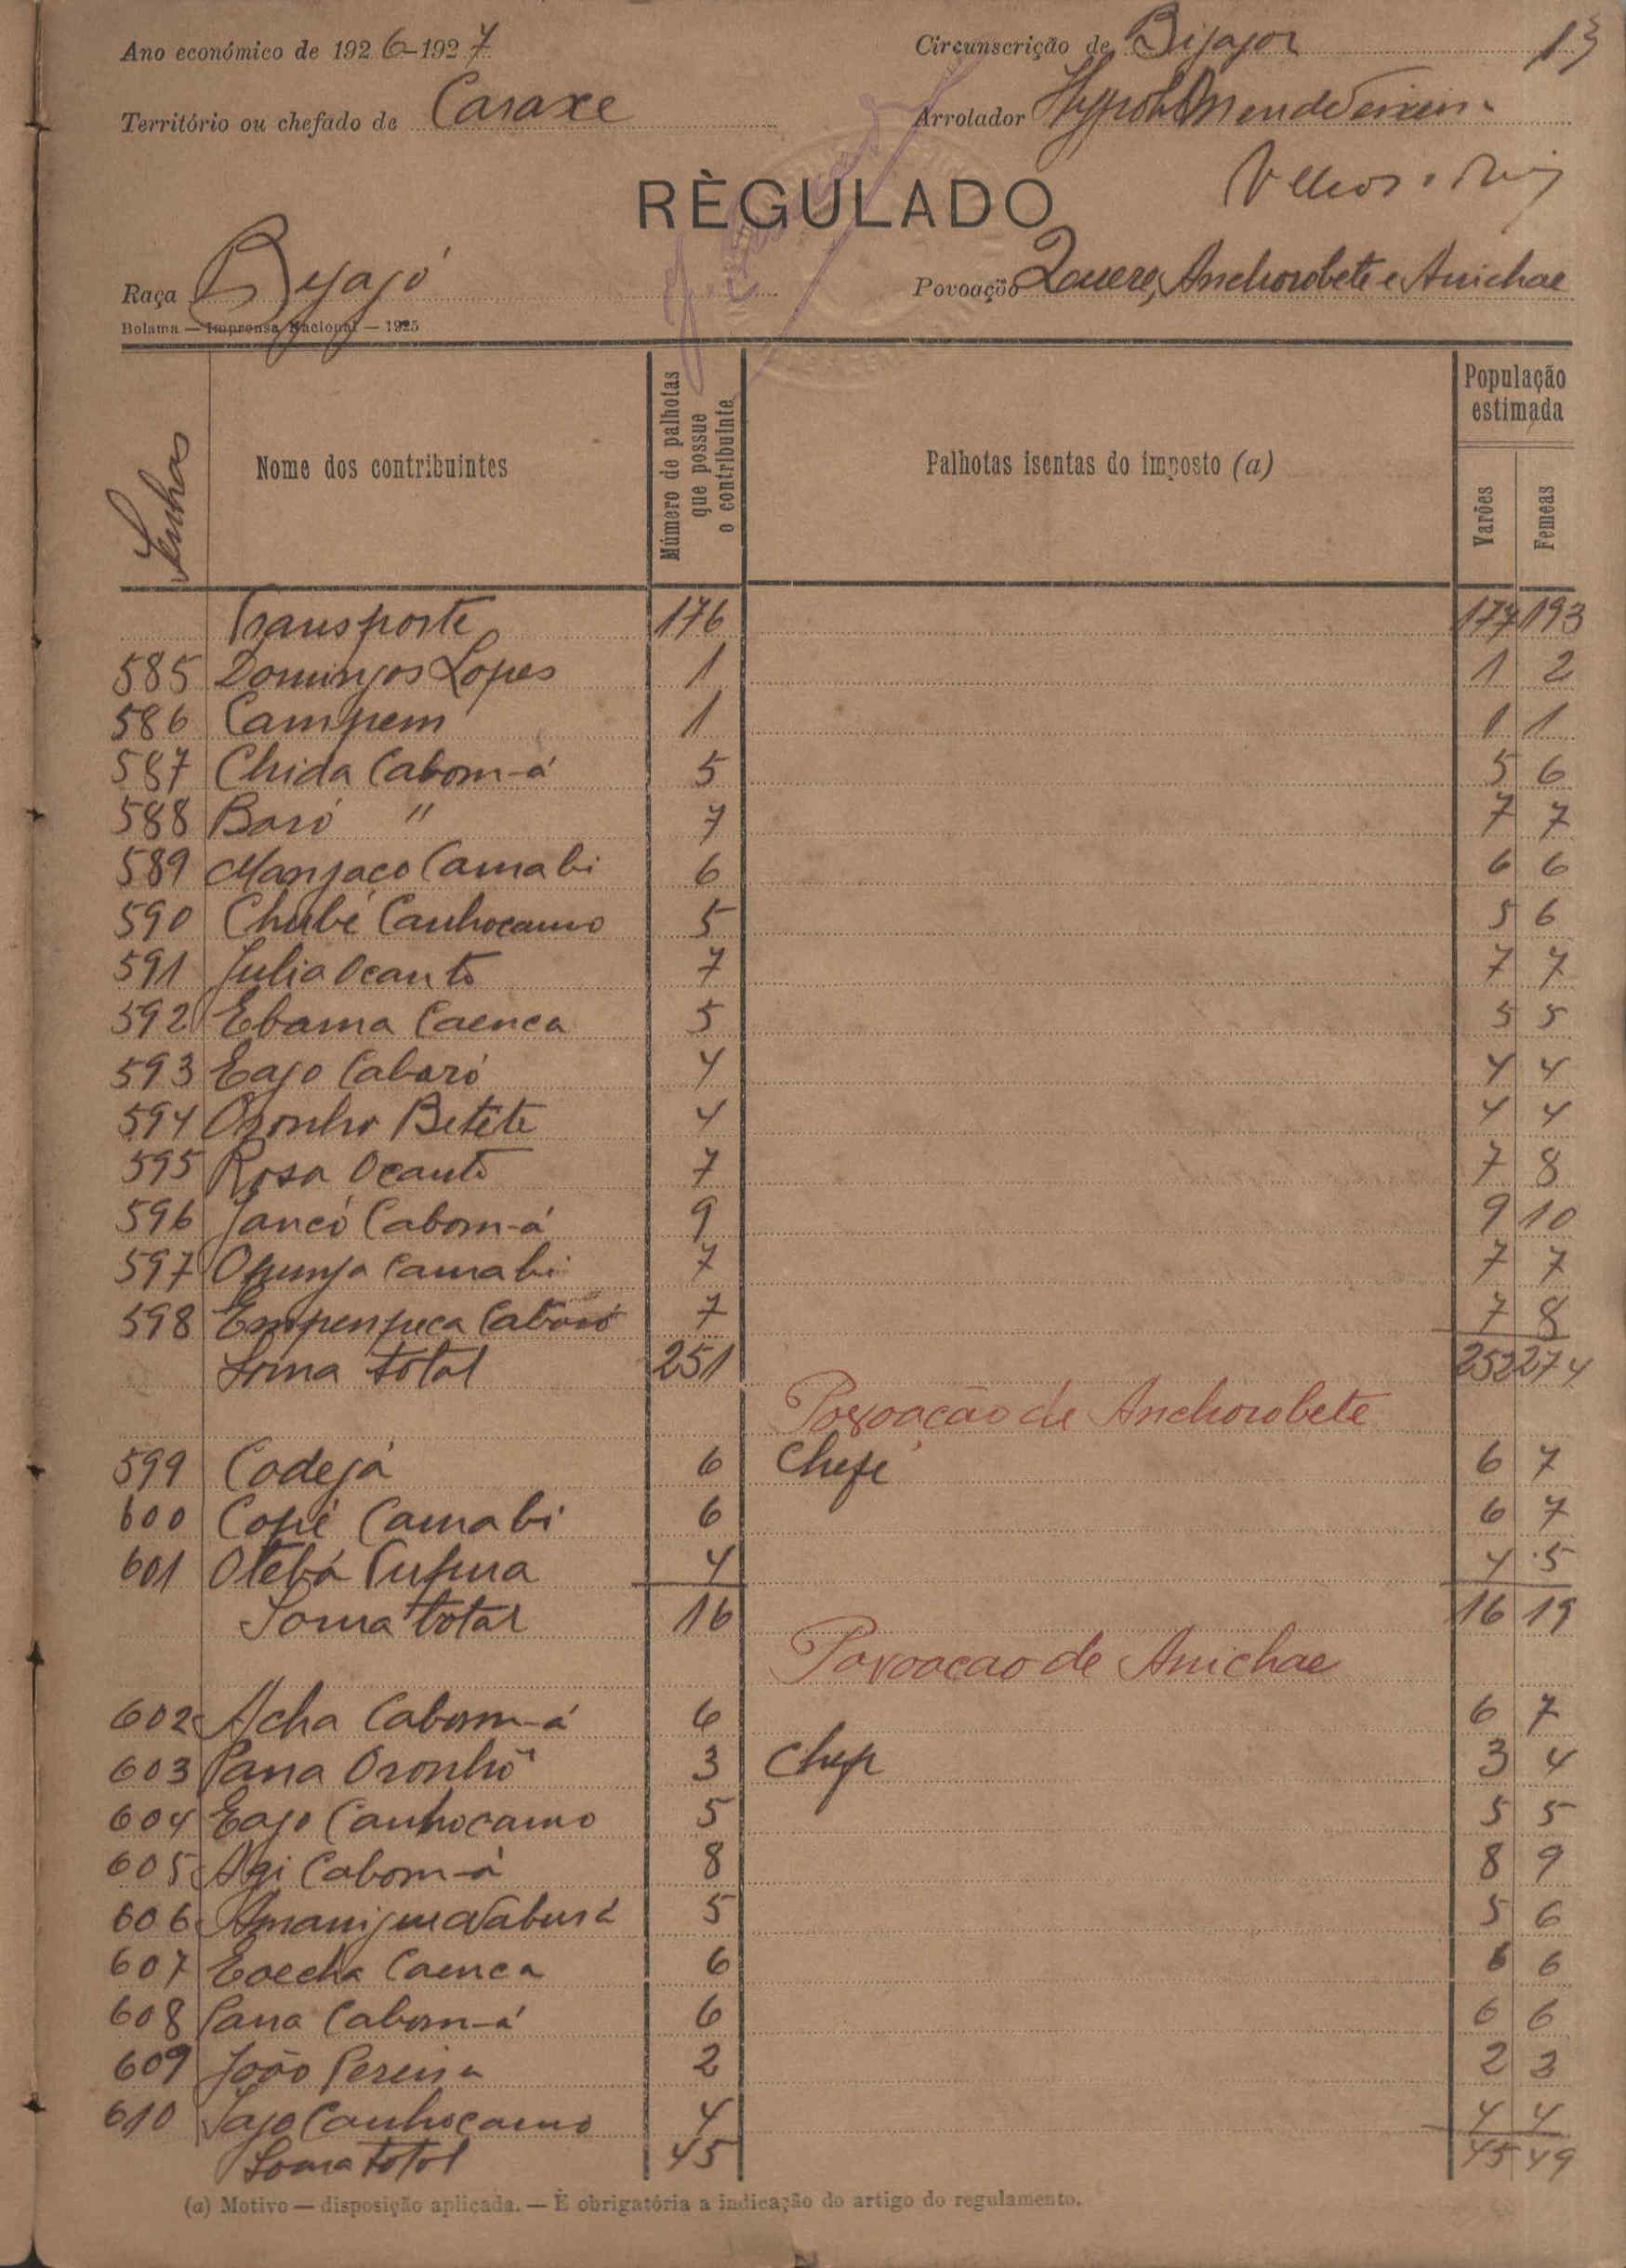 Ano económico de 1926-1927 Circunscrição de Bijagoz 13
Território ou chefado de Caraxe Arrolador
RÈGULADO
Raça Bijajó Povoação Anchorobete e Anichae
Bolama — Imprensa Nacional — 1925
Senhas Nome dos contribuintes Número de palhotas que possue o contribuinte Palhotas isentas do imposto (a) População estimada Varões Femeas
Transporte 176 177 193
585 Domingos Lopes 1 1 2
586 Campem 1 1 1
587 Chida Cabom-á 5 5 6
588 Baró " 7 7 7
589 Manjaco Camabi 6 6 6
590 Chubé Canhocamo 5 5 6
591 Julia Ocanto 7 7 7
592 Ebama Caenca 5 5 5
593 Eajo Cabaró 4 4 4
594 Oronho Betéte 4 4 4
595 Rosa Ocanto 7 7 8
596 Jancó Cabom-á 9 9 10
597 Opunja Camabi 7 7 7
598 Empenpeca Cabaró 7 7 8
Soma total 251 252 274
Povoação de Anchorobete
599 Codejá 6 Chefe 6 7
600 Copé Camabi 6 6 7
601 Otebá 4 4 5
Soma total 16 16 19
Povoacao de Anichae
602 Acha Cabom-á 6 6 7
603 Pana Oronhô 3 Chefe 3 4
604 Eajo Canhocamo 5 5 5
605 Agi Cabom-á 8 8 9
606 5 5 6
607 Eoecha Caenca 6 6 6
608 Pana Cabom-á 6 6 6
609 João Pereira 2 2 3
610 Jajo Canhocamo 4 4 4
Soma total 45 45 49
(a) Motivo — disposição aplicada. — È obrigatória a indicação do artigo do regulamento.